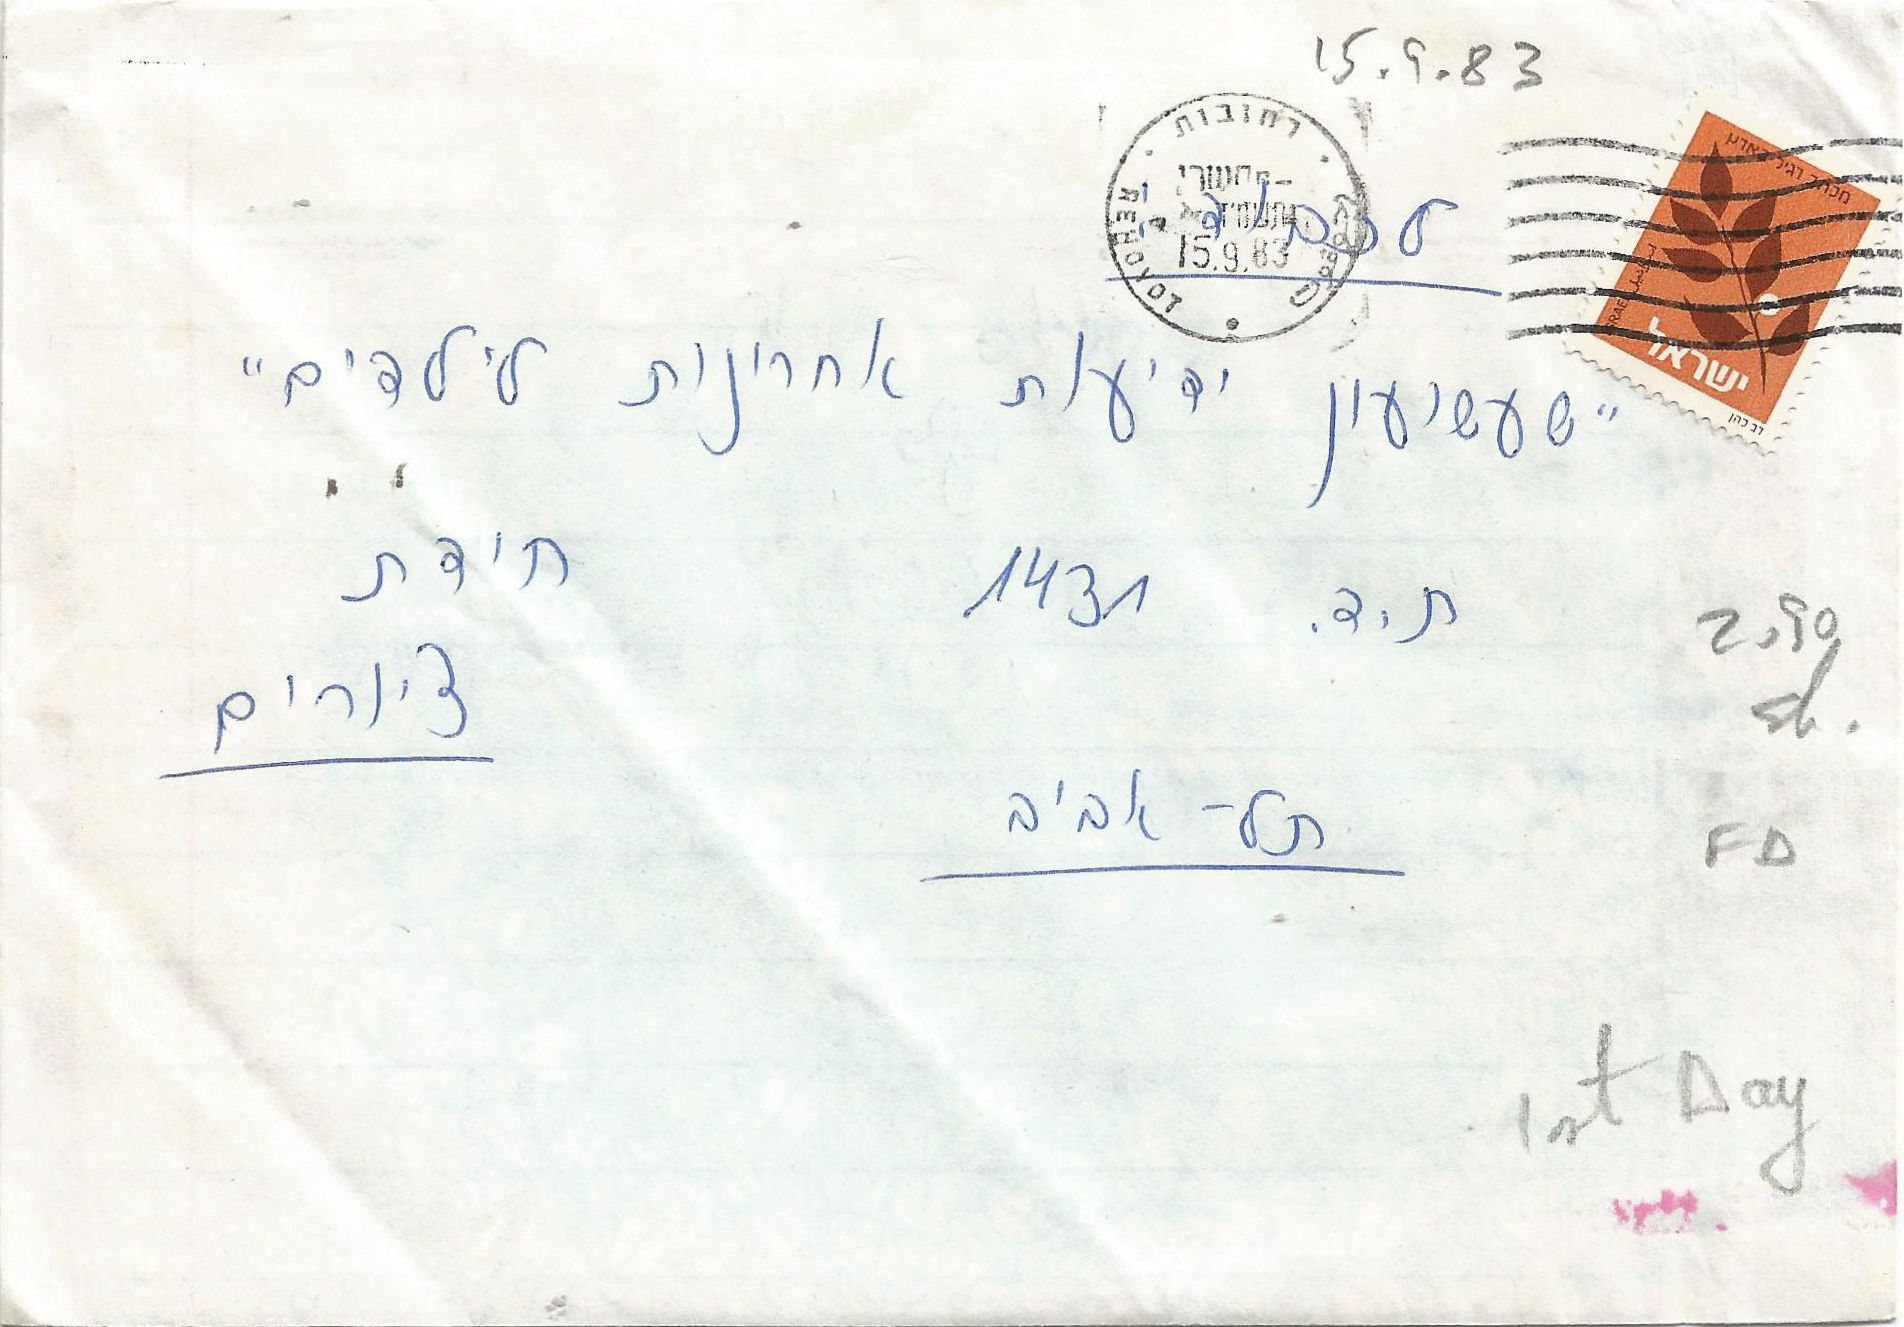 15.9.83
רחובות
תשרי
15.9.83
REHOVOT
מכתב רגיל בארץ
ISRAEL
ישראל
לכבוד
"שעשועון ידיעות אחרונות לילדים"
ת.ד. 1431
חידת
ציורים
תל-אביב
2,90
sh.
FD
1st Day